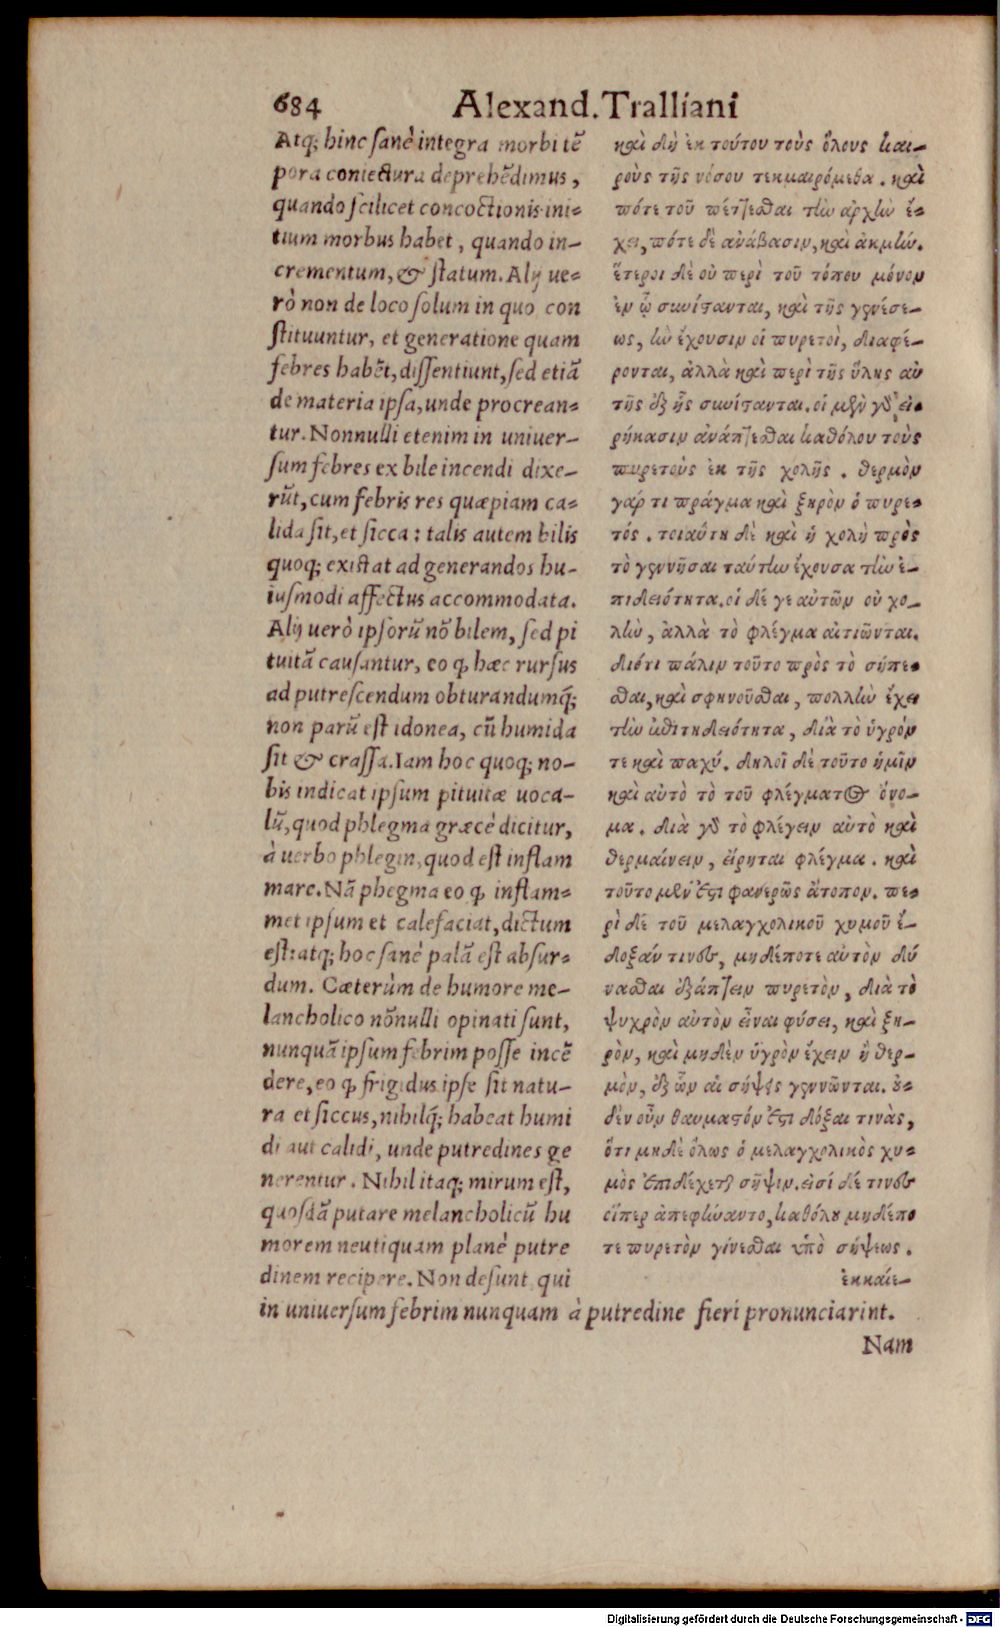 684 Alexand. Tralliani
Atq; hinc sanè integra morbi tẽ
pora coniectura deprehẽdimus,
quando scilicet concoctionis ini=
tium morbus habet, quando in-
crementum, & statum. Alij ue=
rò non de loco solum in quo con
stituuntur, et generatione quam
febres habẽt, dissentiunt, sed etiã
de materia ipsa, unde procrean=
tur. Nonnulli etenim in uniuer-
sum febres ex bile incendi dixe-
rũt, cum febris res quæpiam ca=
lida sit, et sicca: talis autem bilis
quoq; existat ad generandos hu-
iusmodi affectus accommodata.
Alij uerò ipsorũ nõ bilem, sed pi
tuitã causantur, eo ꝙ hæc rursus
ad putrescendum obturandumq́;
non parũ est idonea, cũ humida
sit & crassa. Iam hoc quoq; no-
bis indicat ipsum pituitæ uoca-
lũ, quod phlegma græcè dicitur,
à uerbo phlegin, quod est inflam
mare. Nã phegma eo ꝙ inflam=
met ipsum et calefaciat, dictum
est: atq; hoc sanè palã est absur=
dum. Cæterùm de humore me-
lancholico nõnulli opinati sunt,
nunquã ipsum febrim posse incẽ
dere, eo ꝙ frigidus ipse sit natu-
ra et siccus, nihilq́; habeat humi
di aut calidi, unde putredines ge
nerentur. Nihil itaq; mirum est,
quosdã putare melancholicũ hu
morem neutiquam planè putre
dinem recipere. Non desunt qui
in uniuersum febrim nunquam à putredine fieri pronunciarint.
καὶ δὴ ἐκ τούτου τοὺς ὅλους και-
ροὺς τῆς νόσου τεκμαιρόμεθα. καὶ
πότε τοῦ πέττεσθαι τὴν ἀρχὴν ἔ=
χει, πότε δὲ ἀνάβασιν, καὶ ἀκμήν.
ἕτεροι δὲ οὐ περὶ τοῦ τόπου μόνον
ἐν ᾧ συνίστανται, καὶ τῆς γενέσε-
ως, ἣν ἔχουσιν οἱ πυρετοὶ, διαφέ-
ρονται, ἀλλὰ καὶ περὶ τῆς ὕλης αὐ
τῆς ἐξ ἧς συνίστανται. οἱ μὲν γὰρ εἰ=
ρήκασιν ἀνάπτεσθαι καθόλου τοὺς
πυρετοὺς ἐκ τῆς χολῆς. θερμὸν
γάρ τι πράγμα καὶ ξηρὸν ὁ πυρε=
τός. τοιαύτη δὲ καὶ ἡ χολὴ πρὸς
τὸ γεννῆσαι ταύτην ἔχουσα τὴν ἐ-
πιδειότητα. οἱ δέ γε αὐτῶν οὐ χο-
λὴν, ἀλλὰ τὸ φλέγμα αἰτιῶνται.
διότι πάλιν τοῦτο πρὸς τὸ σήπε=
σθαι, καὶ σφηνοῦσθαι, πολλὴν ἔχει
τὴν ἐπιτηδειότητα, διὰ τὸ ὑγρόν
τε καὶ παχύ. δηλοῖ δὲ τοῦτο ἡμῖν
καὶ αὐτὸ τὸ τοῦ φλέγματος ὄνο-
μα. διὰ γὰρ τὸ φλέγειν αὐτὸ καὶ
θερμαίνειν, εἴρηται φλέγμα. καὶ
τοῦτο μέν ἐστι φανερῶς ἄτοπον. πε=
ρὶ δὲ τοῦ μελαγχολικοῦ χυμοῦ ἔ-
δοξάν τινες, μηδέποτε αὐτὸν δύ
νασθαι ἐξάπτειν πυρετὸν, διὰ τὸ
ψυχρὸν αὐτὸν εἶναι φύσει, καὶ ξη-
ρὸν, καὶ μηδὲν ὑγρὸν ἔχειν ἢ θερ-
μὸν, ἐξ ὧν αἱ σήψεις γεννῶνται. οὐ=
δὲν οὖν θαυμαστόν ἐστι δόξαι τινὰς,
ὅτι μηδὲ ὅλως ὁ μελαγχολικὸς χυ=
μὸς ἐπιδέχεται σῆψιν. εἰσί δέ τινες
οἵπερ ἀπεφήναντο, καθόλου μηδέπο
τε πυρετὸν γίνεσθαι ὑπὸ σήψεως.
ἐκκαίε-
Nam
Digitalisierung gefördert durch die Deutsche Forschungsgemeinschaft - DFG